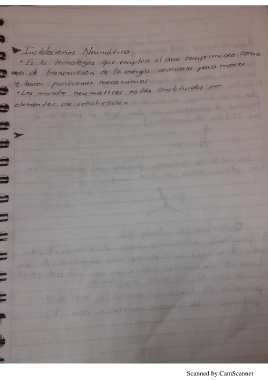 ➤ Instalaciones Neumática
• Es la tecnología que emplea el aire comprimido como
modo de transmisión de la energía necesaria para mover
y hacer funcionar mecanismos.
• Los mando neumáticos están constituidos por
elementos de señalización
➤
Scanned by CamScanner